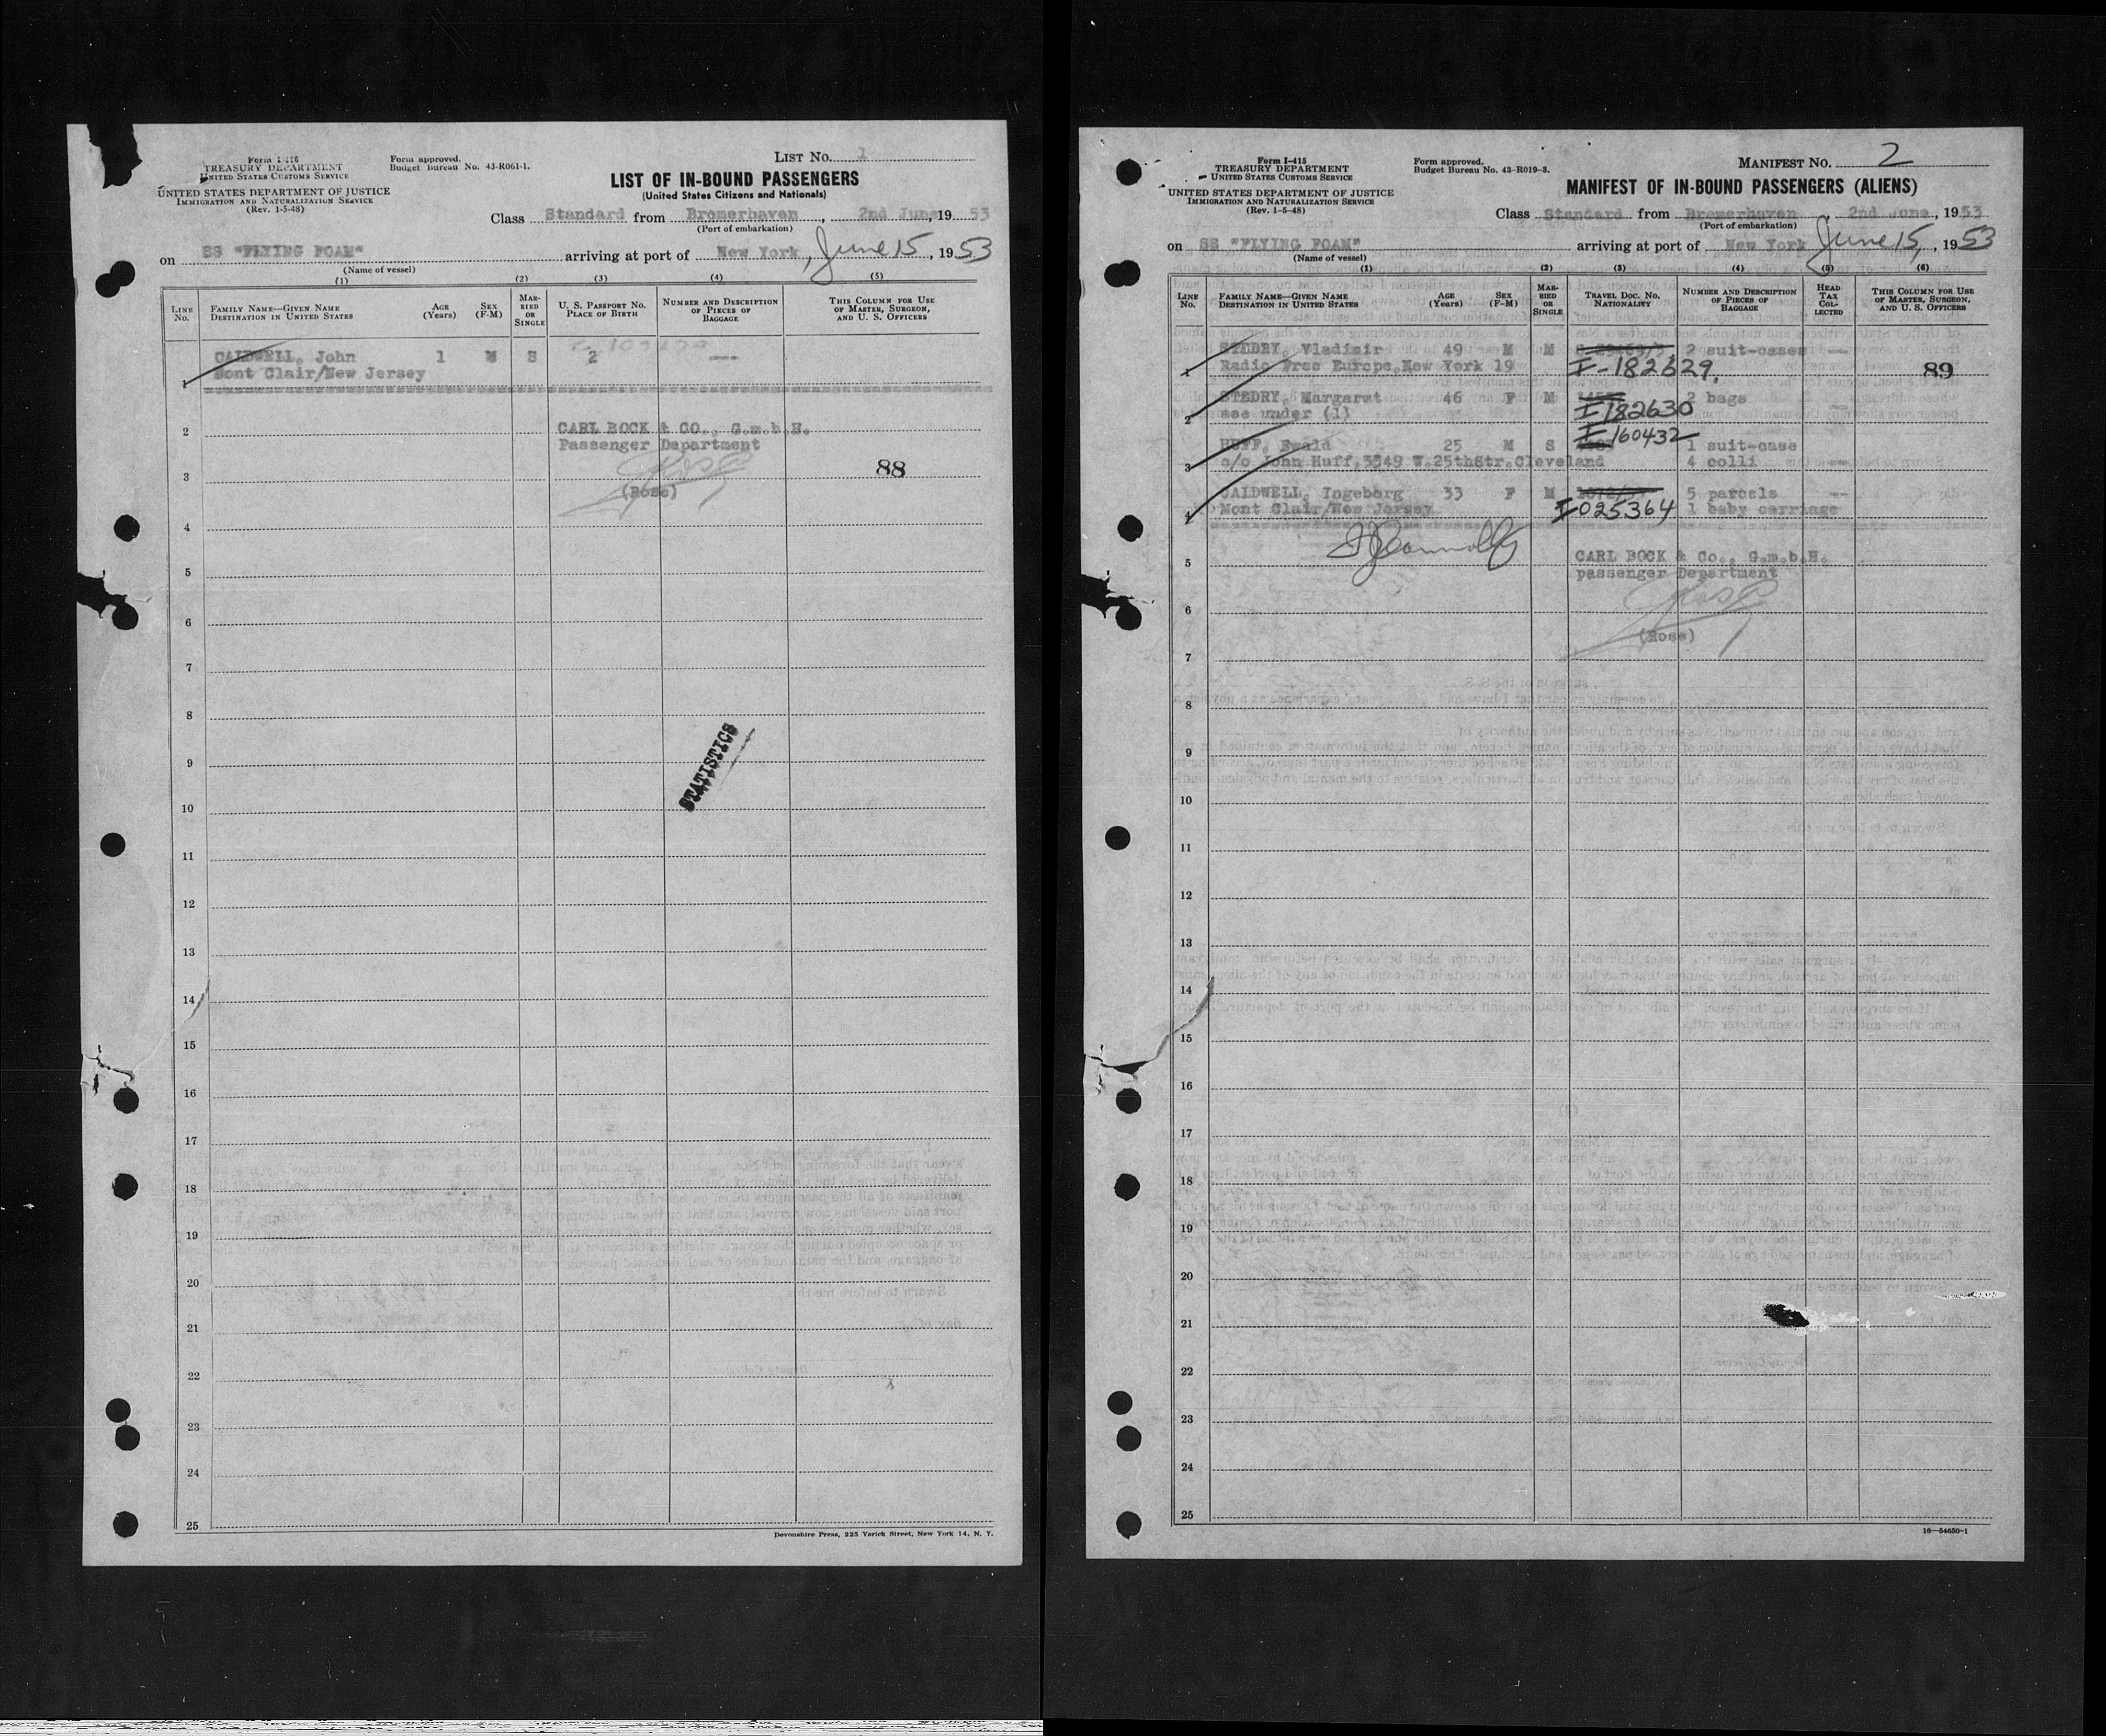 Form I-416
TREASURY DEPARTMENT
UNITED STATES CUSTOMS SERVICE
UNITED STATES DEPARTMENT OF JUSTICE
IMMIGRATION AND NATURALIZATION SERVICE
(Rev. 1-5-48)
Form approved.
Budget Bureau No. 43-R061-1.
LIST NO. 1
LIST OF IN-BOUND PASSENGERS
(United States Citizens and Nationals)
Class Standard from Bremerhaven, 2nd June, 1953
(Port of embarkation)
on SS "FLYING FOAM" arriving at port of New York, June 15, 1953
(Name of vessel)
(1) (2) (3) (4) (5)
LINE NO.
FAMILY NAME—GIVEN NAME
DESTINATION IN UNITED STATES
AGE (Years)
SEX (F-M)
MARRIED OR SINGLE
U. S. PASSPORT NO.
PLACE OF BIRTH
NUMBER AND DESCRIPTION OF PIECES OF BAGGAGE
THIS COLUMN FOR USE OF MASTER, SURGEON, AND U. S. OFFICERS
CALDWELL, John 1 M S 2 ---
1 Mont Clair/New Jersey
2 CARL BOCK & CO., G.m.b.H.
Passenger Department
3 (Rose) 88
4
5
6
7
8
STATISTICS
9
10
11
12
13
14
15
16
17
18
19
20
21
22
23
24
25
Devonshire Press, 225 Varick Street, New York 14, N. Y.
Form I-415
TREASURY DEPARTMENT
UNITED STATES CUSTOMS SERVICE
UNITED STATES DEPARTMENT OF JUSTICE
IMMIGRATION AND NATURALIZATION SERVICE
(Rev. 1-5-48)
Form approved.
Budget Bureau No. 43-R019-3.
MANIFEST NO. 2
MANIFEST OF IN-BOUND PASSENGERS (ALIENS)
Class Standard from Bremerhaven, 2nd June, 1953
(Port of embarkation)
on SS "FLYING FOAM" arriving at port of New York June 15, 1953
(Name of vessel)
(1) (2) (3) (4) (5) (6)
LINE NO.
FAMILY NAME—GIVEN NAME
DESTINATION IN UNITED STATES
AGE (Years)
SEX (F-M)
MARRIED OR SINGLE
TRAVEL DOC. NO.
NATIONALITY
NUMBER AND DESCRIPTION OF PIECES OF BAGGAGE
HEAD TAX COLLECTED
THIS COLUMN FOR USE OF MASTER, SURGEON, AND U. S. OFFICERS
STEDRY, Vladimir 49 M M 2 suit-cases ---
1 Radio Free Europe, New York 19 I-182629. 89
STEDRY, Margaret 46 F M 2 bags
2 see under (1) I182630 ---
I160432
HUFF, Ewald 25 M S 1 suit-case
3 c/o John Huff, 3349 W.25thStr.Cleveland 4 colli ---
CALDWELL, Ingeborg 33 F M 5 parcels ---
4 Mont Clair/New Jersey I025364 1 baby carriage
5 CARL BOCK & Co., G.m.b.H.
passenger Department
6
(Rose)
7
8
9
10
11
12
13
14
15
16
17
18
19
20
21
22
23
24
25
16—54650-1